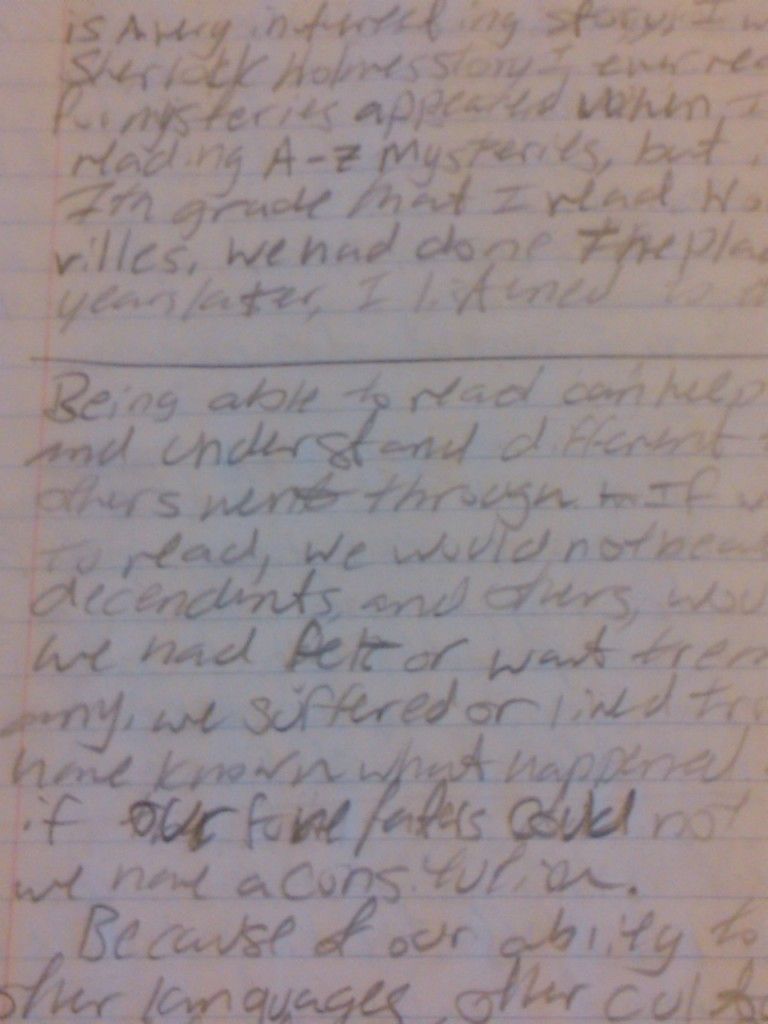 is A very interesting story. I w
Sherlock Holmes story I ever rea
mysteries appeared when I
reading A-Z Mysteries, but
7th grade that I read Ho
villes, we had done The pla
years later, I listened to
Being able to read can help
and understand different
others went through. If w
to read, we would not be a
decendints, and others, wou
we had felt or want them
any, we suffered or lived
have known what happened
if our fore faters could not
we have a constitution.
Because of our ability to
other languages, other cultu